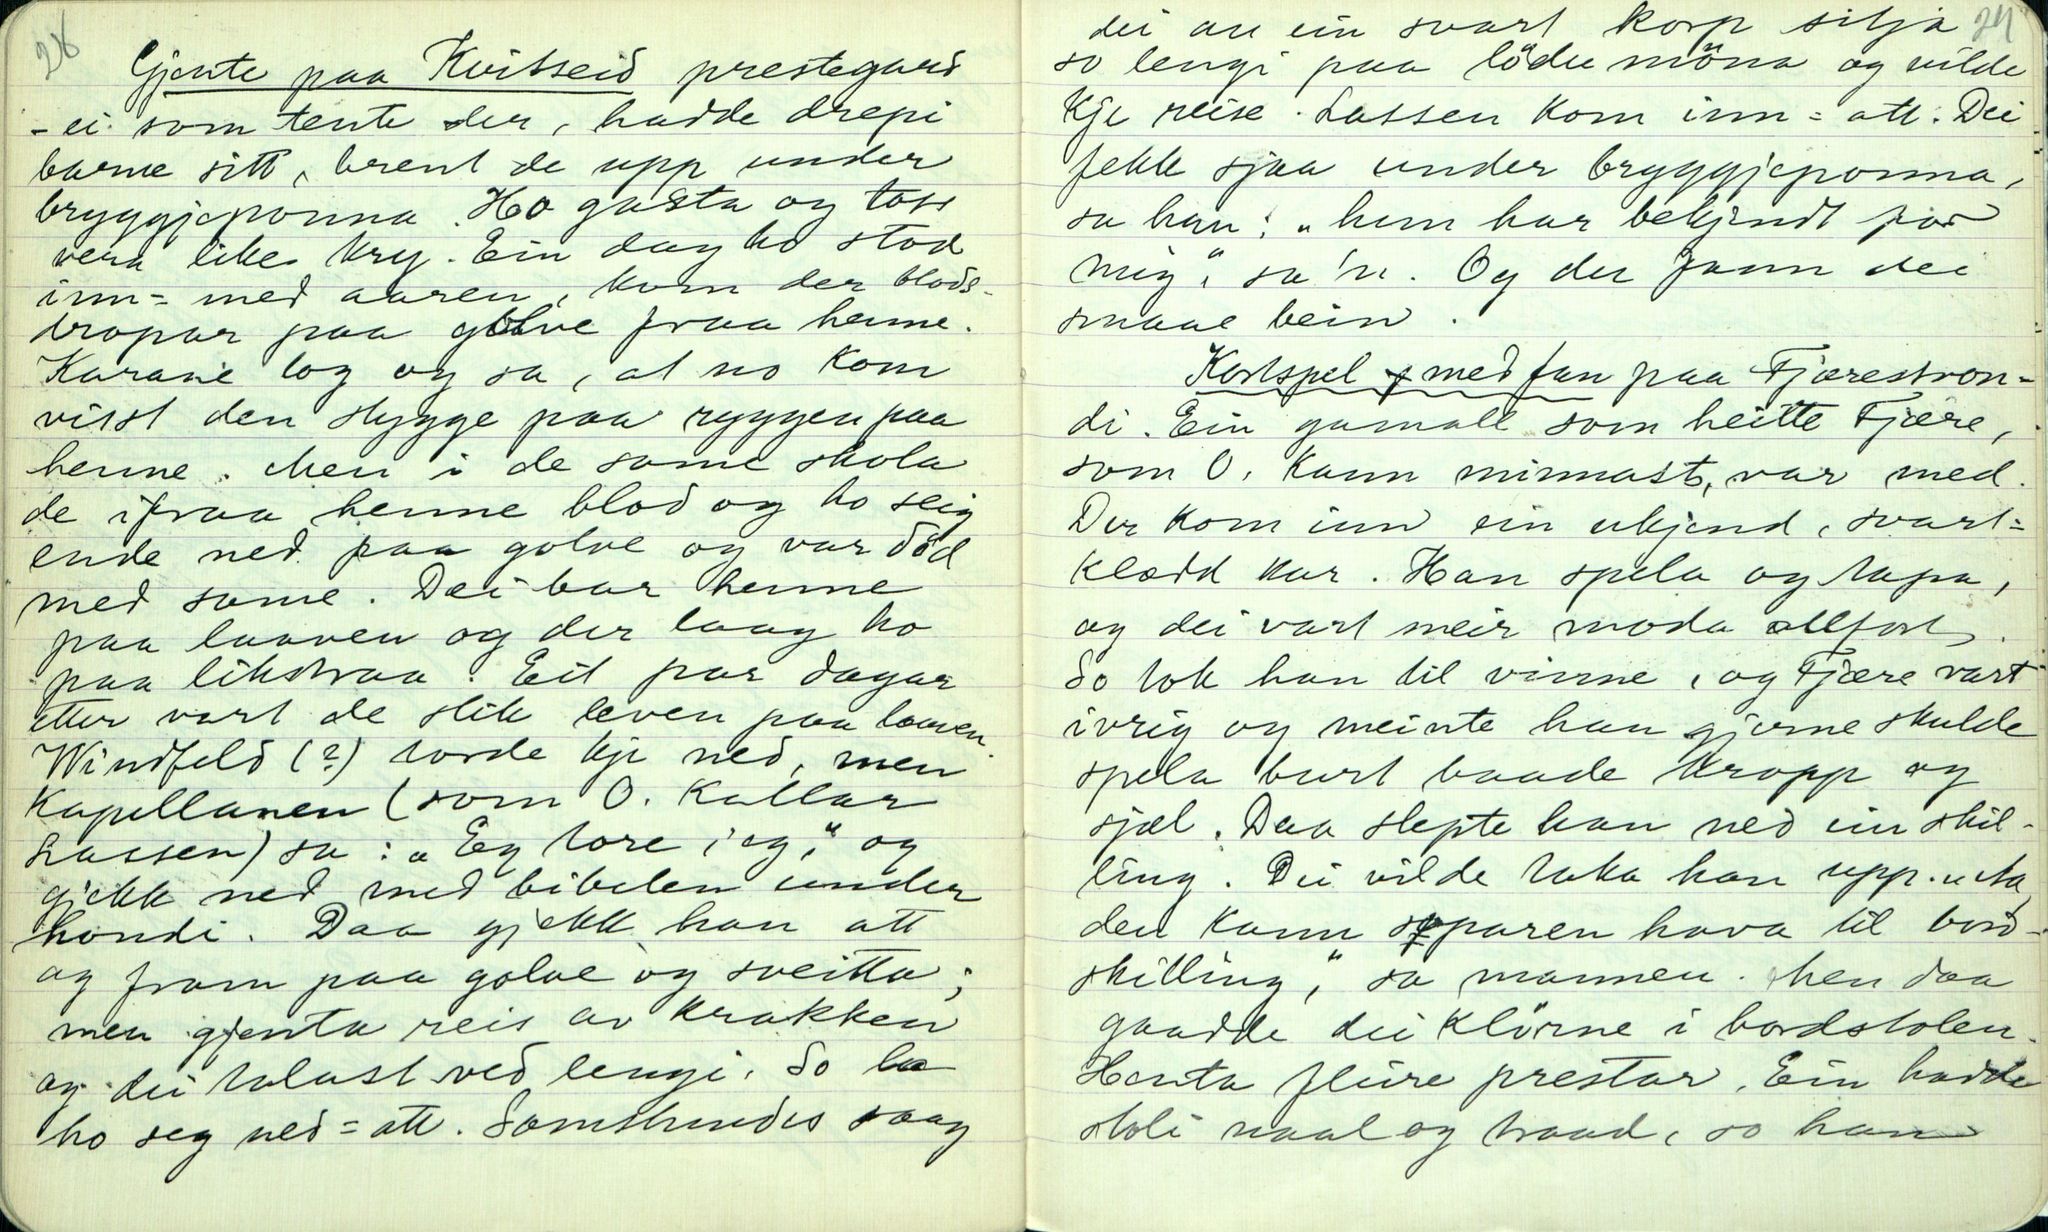 28
Gjente paa Kvitseid prestegard
- ei som tente der, hadde drepi
barne sitt, brent de upp under
bryggjeponna. Ho gasta og tost
vera like kry. Ein dag ho stod
inn= med aaren, kom der blods-
dropar paa golve fraa henne.
Karane log og sa, at no kom
visst den stygge paa ryggen paa
henne. Men i de same skola
de ifraa henne blod og ho seig
ende ned paa golve og var död
med same. Dei bar henne
paa laaven og der laag ho
paa likstraa. Eit par dagar
etter vart de slik leven paa laaven.
Windfeld (?) torde kje ned, men
Kapellanen (som O. kallar
Lassen) sa: „Eg tore, eg," og
gjekk ned med bibelen under
hondi. Daa gjekk han att
og fram paa golve og sveitta;
men gjenta reis av krakken
og dei talast ved lengi. So la
ho seg ned=att. Somstundes saag
29
dei au ein svart korp sitja
so lengi paa lödumöna og vilde
kje reise. Lassen kom inn=att. Dei
fekk sjaa under bryggjeponna,
sa han: „hun har bekjendt for
mig", sa 'n. Og der fann dei
smaae bein.
Kortspel med fan paa Fjærestron-
di. Ein gamall som heitte Fjære,
som O. kann minnast, var med.
Der kom inn ein ukjend, svart=
klædd kar. Han spela og tapa,
og dei vart meir moda allfort.
So tok han til vinne, og Fjære vart
ivrig og meinte han gjerne skulde
spela burt baade kropp og
sjæl. Daa slepte han ned ein skil-
ling. Dei vilde taka han upp. „ Aa
den kann soparen hava til bord-
skilling," sa mannen. Men daa
gaadde dei klörne i bordstolen.
Henta fleire prestar. Ein hadde
stoli naal og traad, so han